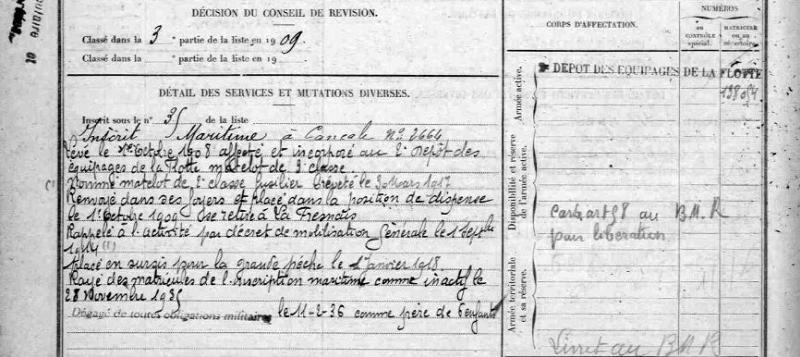 DÉCISION DU CONSEIL DE REVISION.
Classé dans la 3 partie de la liste en 1909.
Classé dans la partie de la liste en 19
DÉTAIL DES SERVICES ET MUTATIONS DIVERSES.
Inscrit sous le n° 35 de la liste
Inscrit Maritime à Cancale N° 2664
Levé le 1er Octobre 1908 affecté et incorporé au 2e Dépôt des
équipages de la flotte matelot de 3e classe
Nommé matelot de 2e classe fusilier breveté le 30 Mars 1917
Renvoyé dans ses foyers et placé dans la position de dispense
le 1er Octobre 1909 se retire à La Fresnais
Rappelé à l'activité par décret de mobilisation Générale le 1 Septbre
1914 (1)
Placé en sursis pour la grande pêche le 1 Janvier 1918
Rayé des matricules de l'Inscription maritime comme inactif le
28 Novembre 1935
Dégagé de toutes obligations militaires le 11-2-36 comme père de 6 enfants
CORPS D'AFFECTATION.
NUMÉROS
au CONTRÔLE spécial.
MATRICULE ou au répertoire.
Armée active.
DEPOT DES EQUIPAGES DE LA FLOTTE
Disponibilité et réserve de l'armée active.
art 98 au B.M.R
pour libération
Armée territoriale et sa réserve.
Livret au B M R